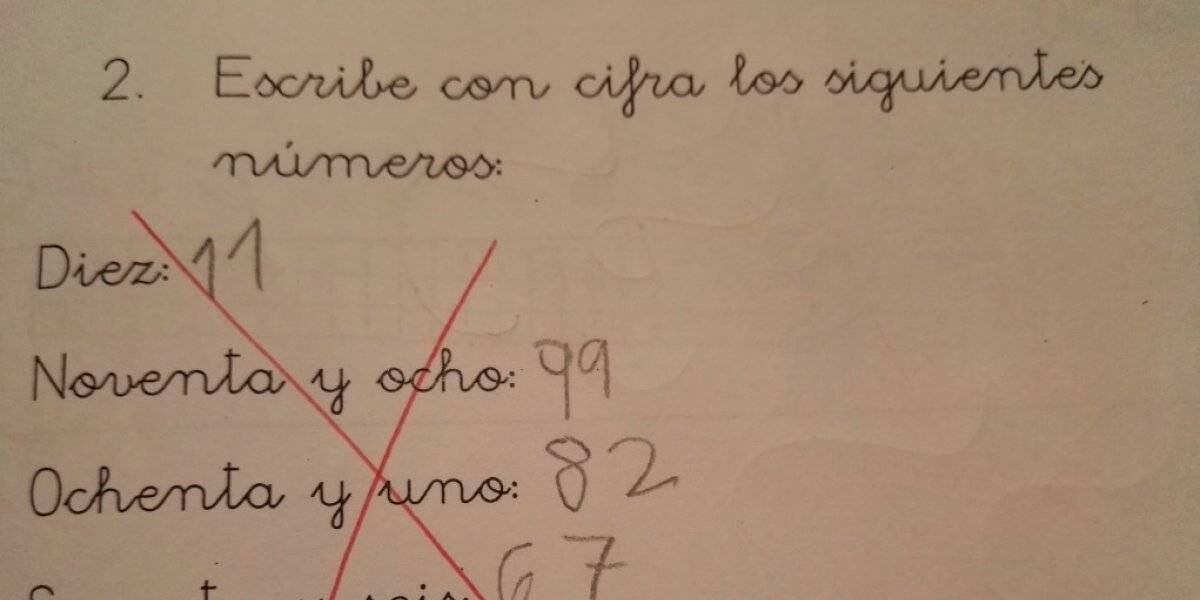 2. Escribe con cifra los siguientes
números:
Diez: 11
Noventa y ocho: 99
Ochenta y uno: 82
67